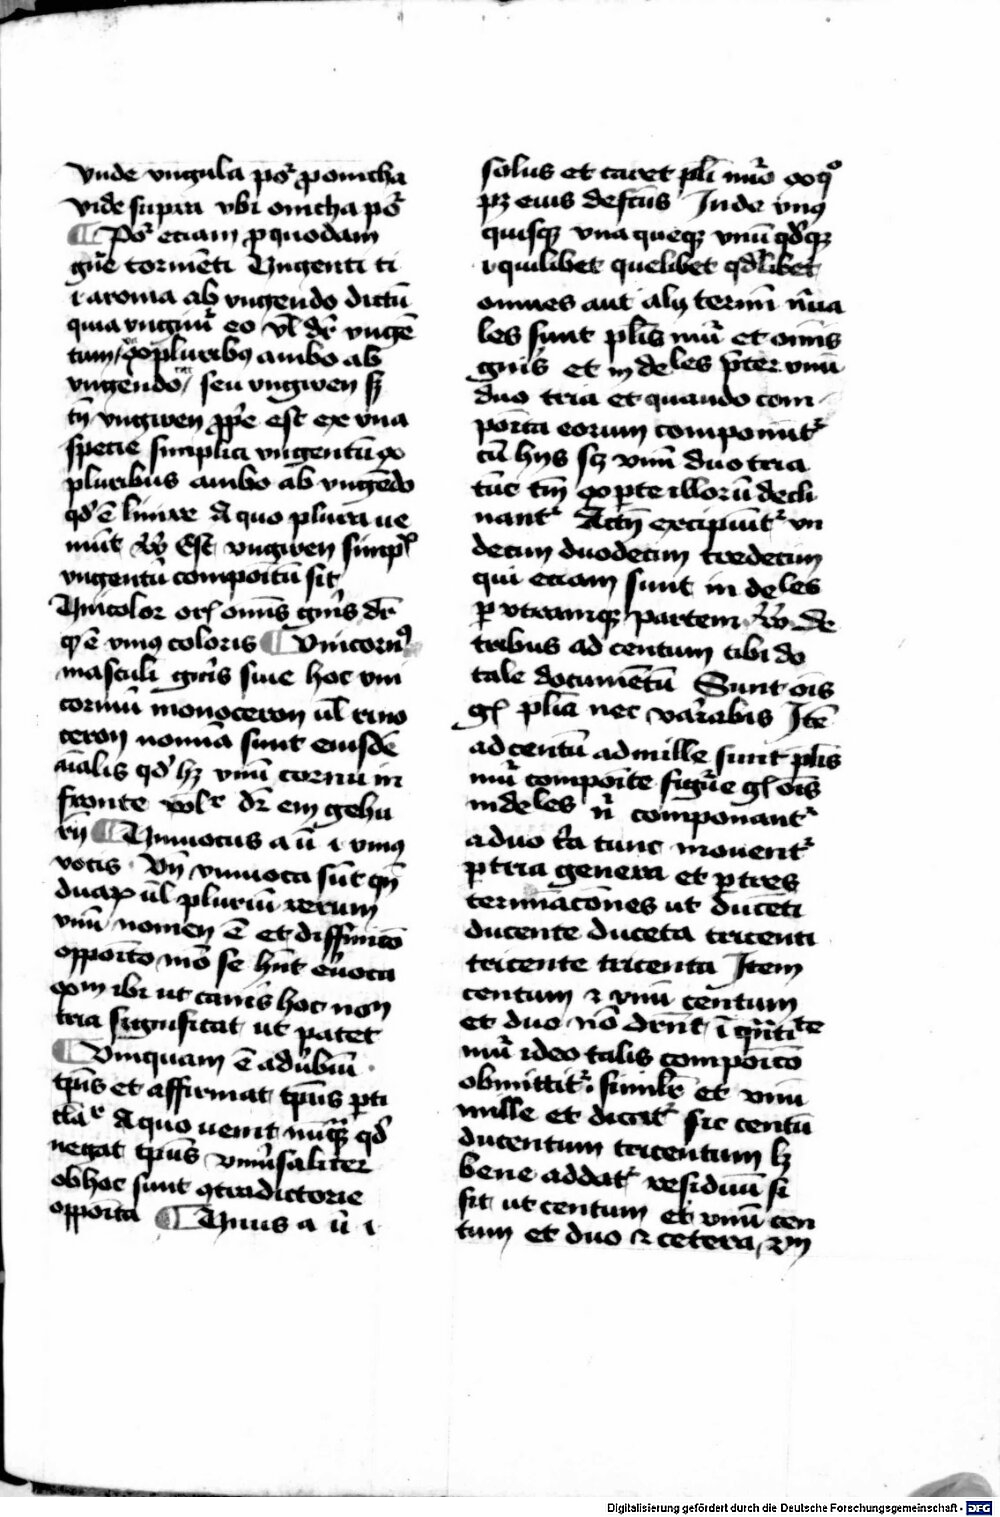 vnde vngula por̾ ponicha
vide supra vbi onicha por̾
Por̾ eciam p quodam
gn̄e tormēti Vngenti ti
i aroma ab vngendo dictū
quia vngim̄ eo vl̄ dr̄ vngē
tum pluribꝫ ambo ab
vngendo seu vngwen sꝫ
tn̄ vngwen ꝓpe est ex vna
specie simplici vngentū
pluribus ambo ab vngēdo
qd̄ ē linire A quo plura ue
niūt Est vngwen simpl̄
vngentū compoītū sit
Vnicolor om̄is gn̄is dr̄
qͥ ē vniꝰ coloris Vnicornꝰ
masculi gn̄is siue hoc vni
cornū monoceron ul̄ rino
ceron nomīa sunt eiusdē
aīalis qd̄ hꝫ vnū cornu in
fronte dr̄ em gehu
rn Vniuocus a ū i vniꝰ
vocis Vn̄ vniuoca sūt qn̄
duaꝝ ul̄ pluriū rerum
vnū nomen ē et diffinicō
oppoīto mō se hn̄t eq̄uoca
ibi ut canis hoc non
tria significat ut patet
Vnquam ē adubiū
tp̄us et affirmat tp̄us pti
A quo uenit nūqꝫ qd̄
negat tp̄us vniūsaliter
ob hoc sunt ꝯtradictorie
oppoīta Vnus a ū i
solus et caret pl̄i nūo
pꝫ eius defctus Inde vnꝰ
quisqꝫ vna queqꝫ vnū qd̄qꝫ
i quilibet quelibet qd̄libet
omnes aut alij termī nūa
les sunt pl̄is nūi et om̄is
gn̄is et in de les p̄ter vnū
duo tria et quando com
ponta eorum componūtr̾
cū hijs scꝫ vnū duo tria
tūc tm̄ pte illorū decli
nantr̾ Actn̄ excipiūtr̾ vn
decim duodecim tredecim
qui eciam sunt in de les
p utramqꝫ partem De
tribus ad centum tibi do
tale documētū Sunt oīs
gn̄ pl̄ia nec variabis Itē
ad centū ad mille sunt pl̄is
nūi compoīte figūe gn̄ oīs
indeles n̄ componantr̾
a duo tr̄a tunc mouentr̾
p tria genera et p tres
terminacōnes ut ducēti
ducente duceta tricenti
tricente tricenta Item
centum 2 vnū centum
et duo nō drn̄t ī qn̄tite
nūi ideo talis compoīcō
obmittitr̾ simlr̄ et vnū
mille et dicitr̾ sic centū
ducentum tricentum lꝫ
bene addatr̾ residuū si
sit ut centum et vnū cen
tum et duo 2 cetera vn̄
Digitalisierung gefördert durch die Deutsche Forschungsgemeinschaft - DFG